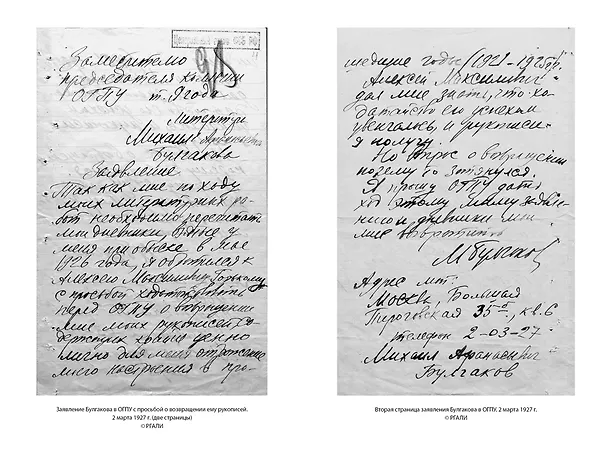 Заместителю
председателя коллегии
ОГПУ т. Ягода
Литератор
Михаил Афанасьевич
Булгаков
Заявление
Так как мне по ходу
моих литературных ра-
бот необходимо перечитать
мои дневники, взятые у
меня при обыске в мае
1926 года, я обратился к
Алексею Максимовичу Горькому
с просьбой ходатайствовать
перед ОГПУ о возвращении
мне моих рукописей, со-
держащих крайне ценно
лично для меня отражение
моего настроения в про-
Заявление Булгакова в ОГПУ с просьбой о возвращении ему рукописей.
2 марта 1927 г. (две страницы)
© РГАЛИ
шедшие годы (1921-1925 гг.)
Алексей Максимович
дал мне знать, что хо-
датайство его успехом
увенчалось, и рукописи
я получу.
Но вопрос о возвращении
почему-то затянулся.
Я прошу ОГПУ дать
ход этому моему заявле-
нию и дневники мои
мне возвратить
М Булгаков
Адрес мой:
Москва, Большая
Пироговская 35 б, кв. 6
телефон 2-03-27
Михаил Афанасьевич
Булгаков
Вторая страница заявления Булгакова в ОГПУ. 2 марта 1927 г.
© РГАЛИ